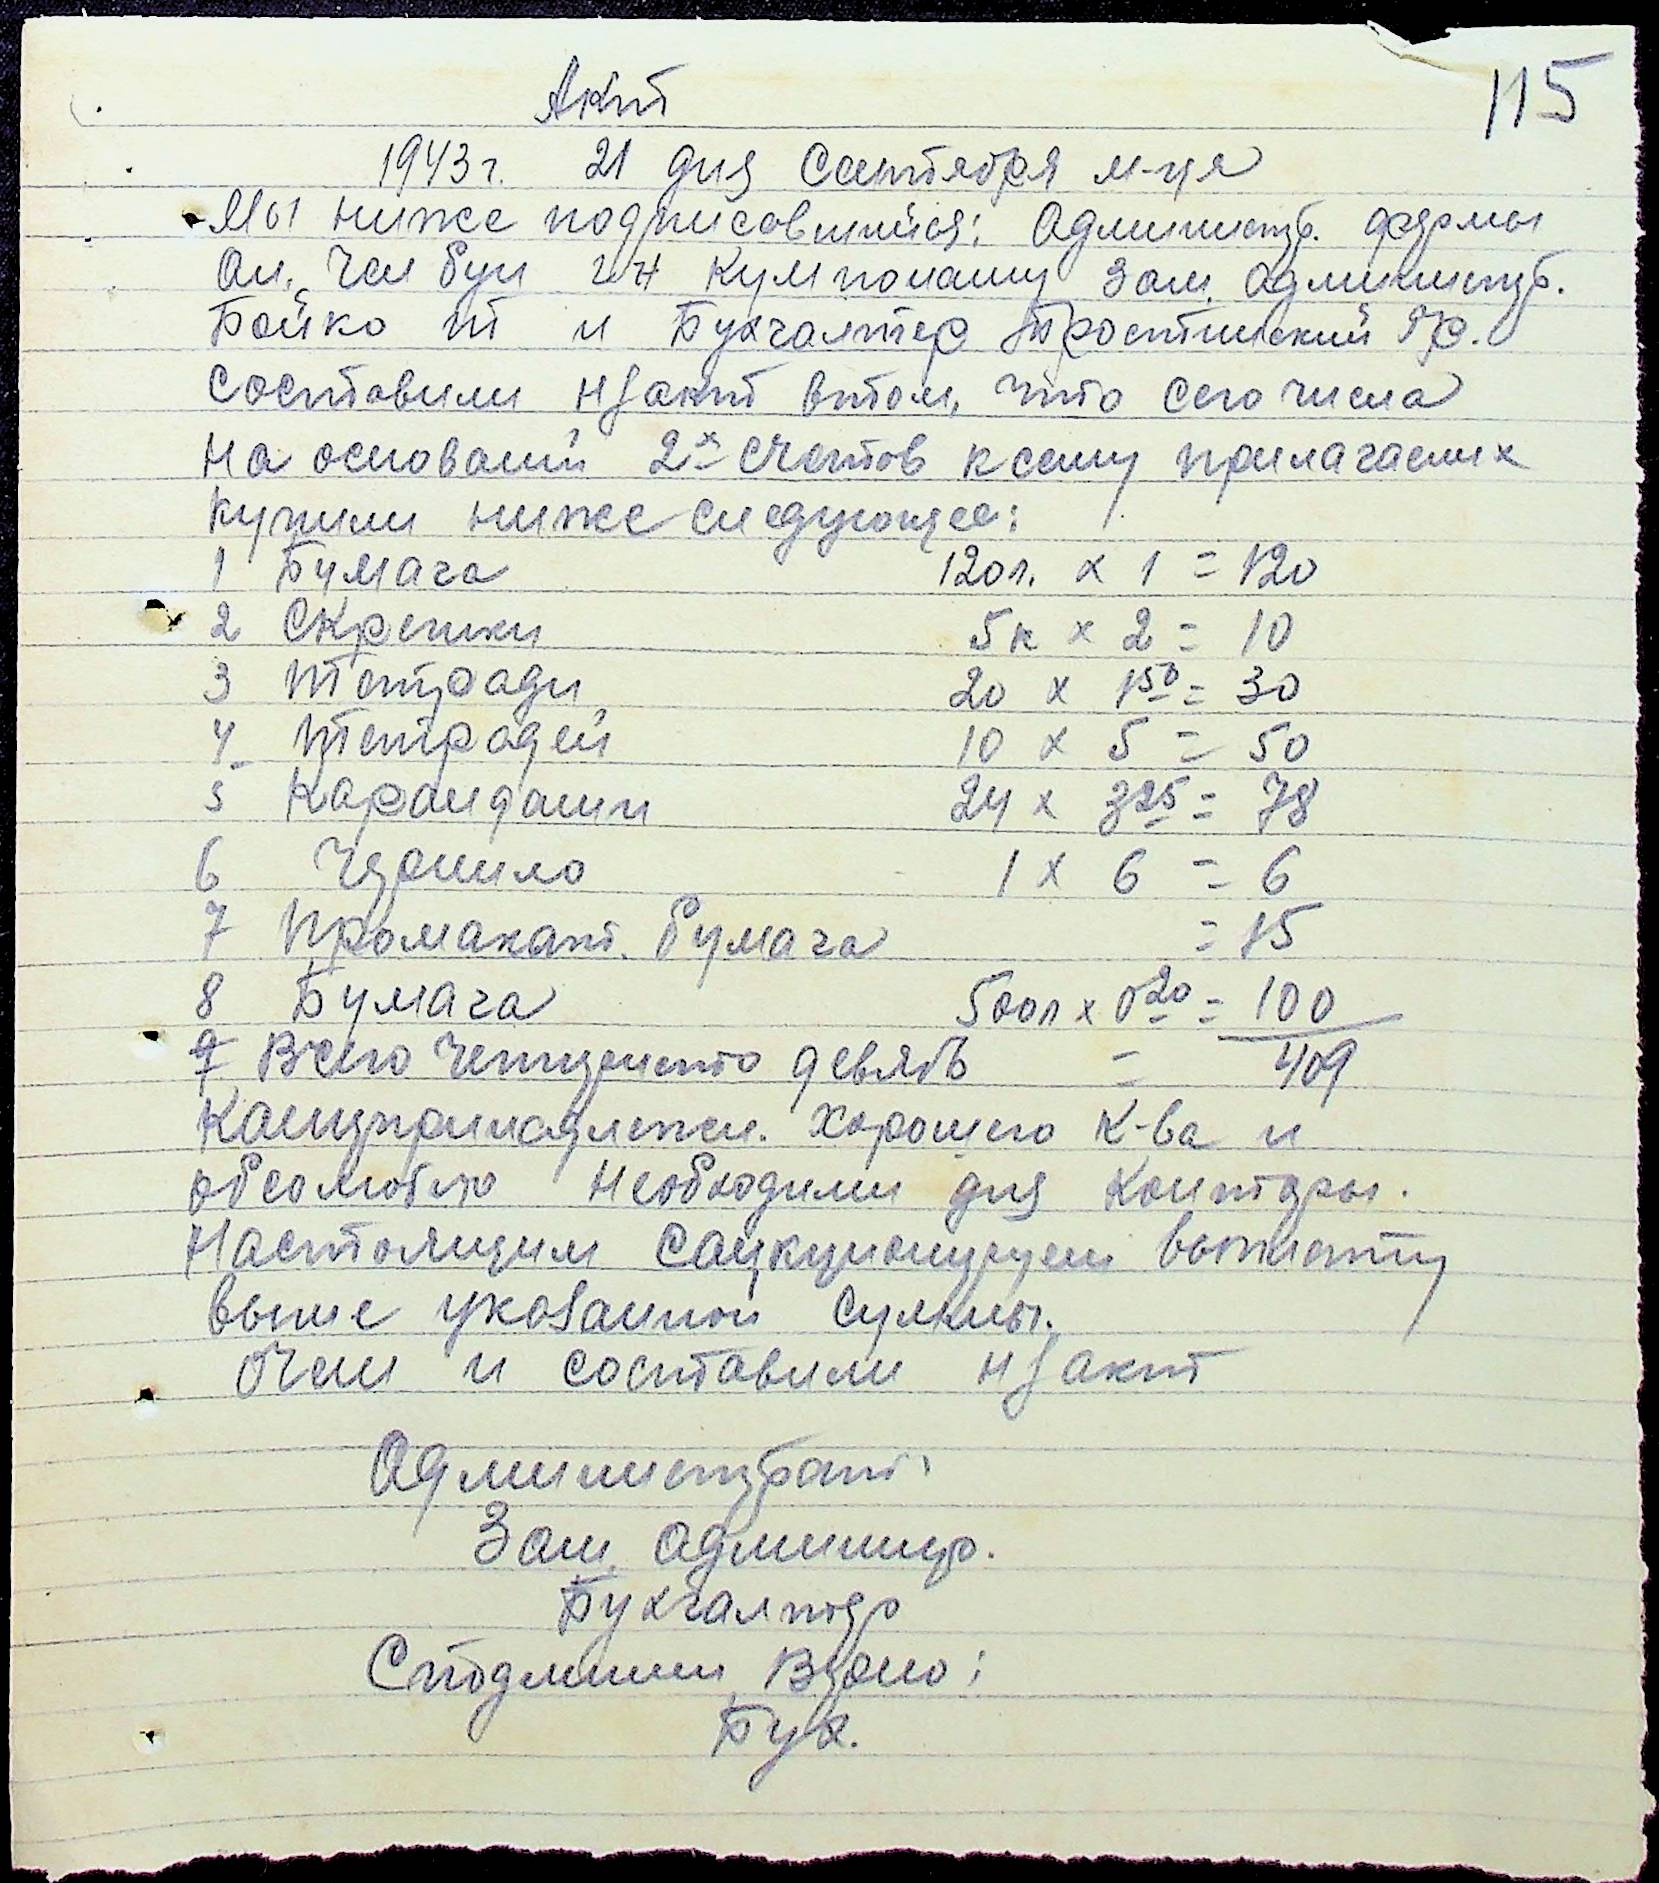 115
Акт
1943 г. 21 дня Сентября м-ця
Мы ниже подписовшийся: Администр. фермы
Ал. Чел бун г-н Кумпонашу Зам. Администр.
Бойко Т и Бухгалтер Тростинский Яр.
Составили н/акт втом, что сего числа
На оснований 2х счетов к сему прилагаемих
купили ниже следующее:
1 Бумага 120л. х 1 = 120
2 Скрепки 5к х 2 = 10
3 Тетради 20 х 1 50 = 30
4 Тетрадей 10 х 5 = 50
5 Карандаши 24 х 3 25 = 78
6 Чернило 1 х 6 = 6
7 Промакат. бумага = 15
8 Бумага 500л х 0 20 = 100
9 Всего четыреста девять = 409
Канцпринадлежн. хорошего к-ва и
обсолютно необходими для Конторы.
Настоящим санкционируем выплату
выше указанной суммы.
О чем и составили н/акт
Администрат:
Зам. админстр.
Бухгалтер
С подлиним верно:
Бух.